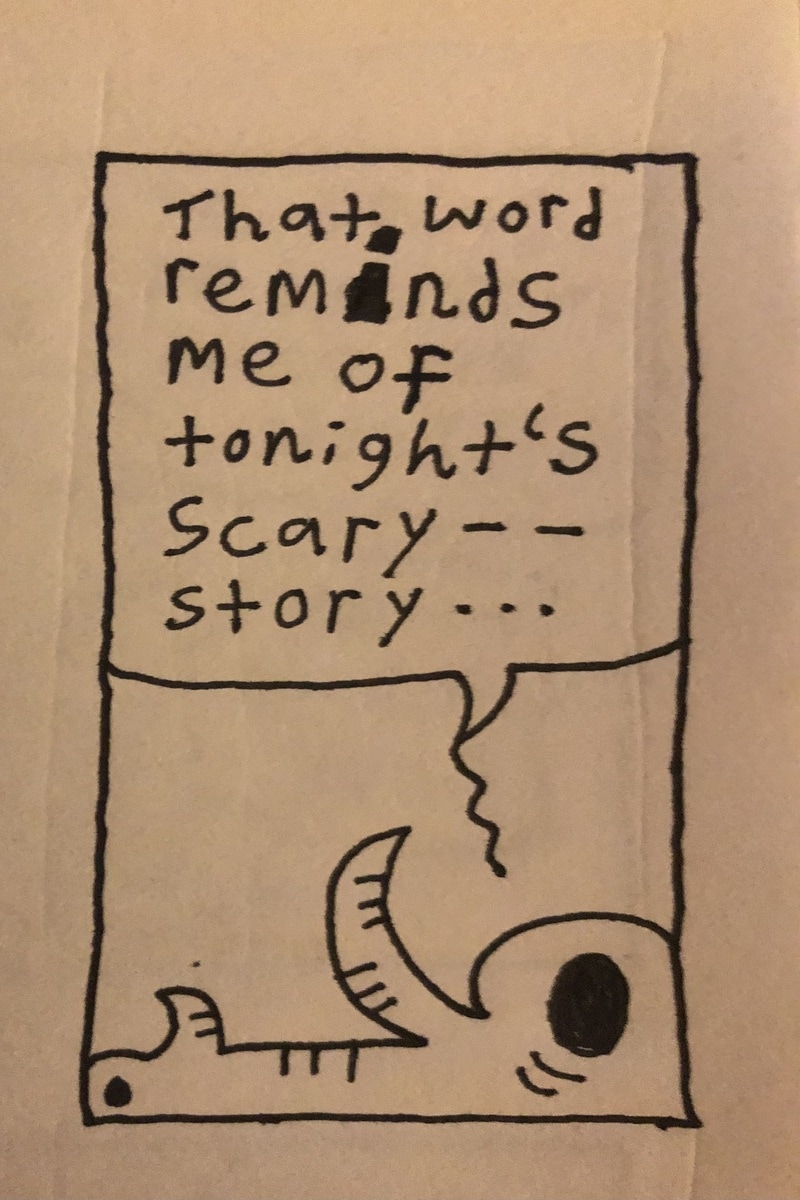 That word
reminds
me of
tonight's
scary--
story...